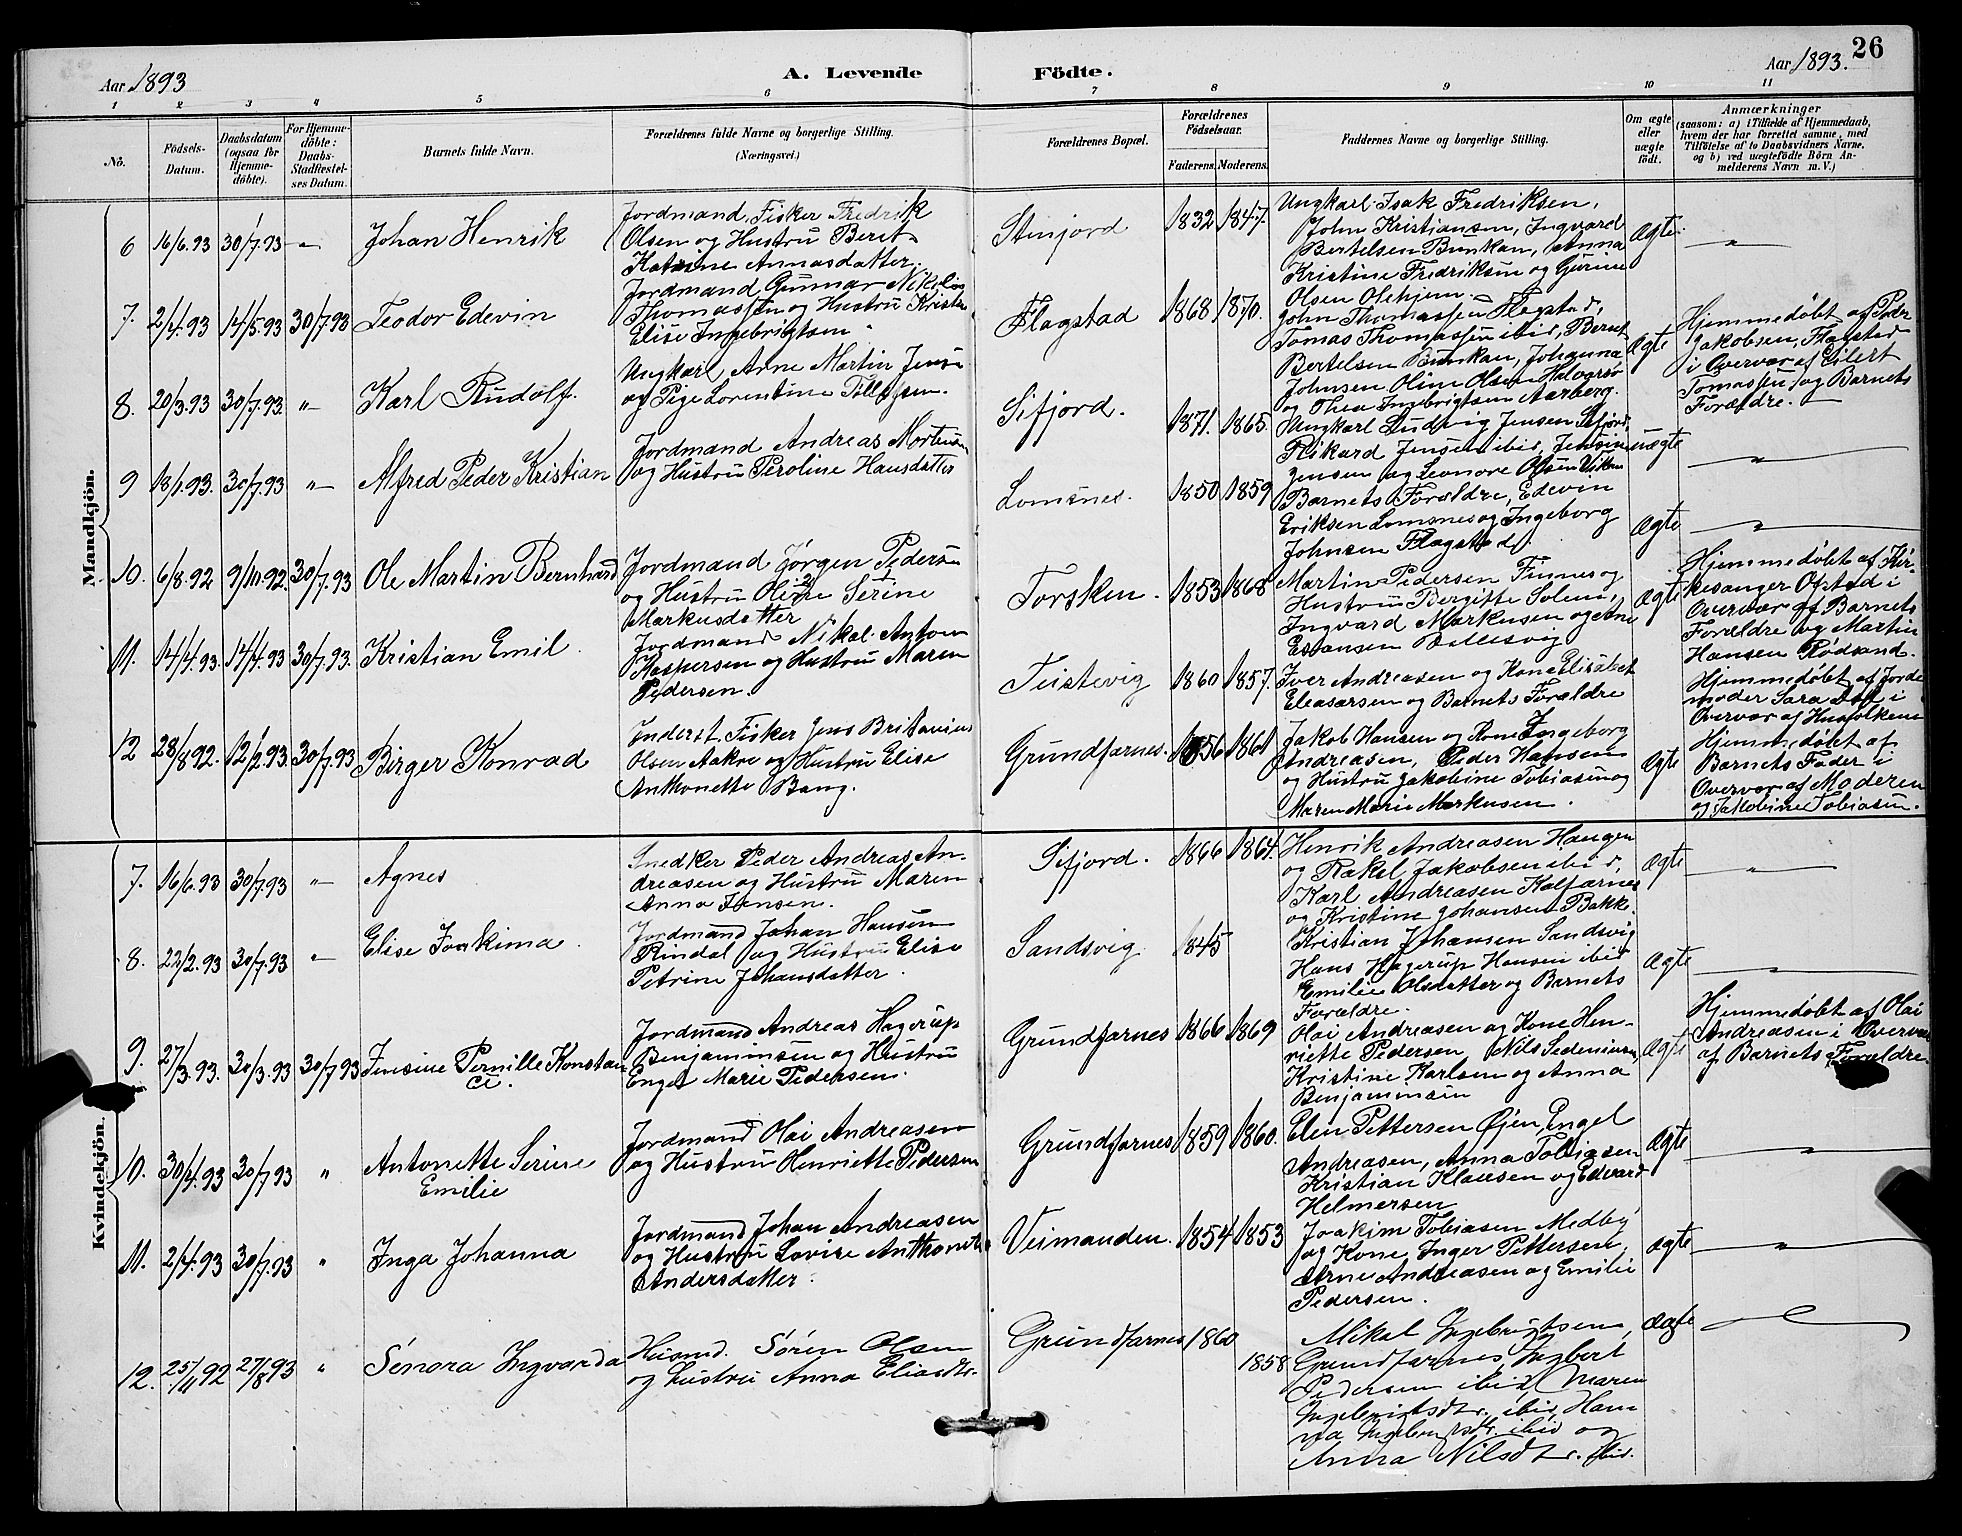 26
Aar 1893
A. Levende Födte.
Aar 1893.
1 2 3 4 5 6 7 8 9 10 11
No.
Födsels-Datum.
Daabsdatum (ogsaa for Hjemme-döbte).
For Hjemme-döbte: Daabs-Stadfæstel-ses Datum.
Barnets fulde Navn.
Forældrenes fulde Navne og borgerlige Stilling.
(Næringsvei.)
Forældrenes Bopæl.
Forældrenes Födselsaar.
Faderens. Moderens.
Faddernes Navne og borgerlige Stilling.
Om ægte eller uægte födt.
Anmærkninger
(saasom: a) i Tilfælde af Hjemmedaab,
hvem der har forrettet samme, med
Tilföielse af to Daabsvidners Navne,
og b) ved uægtefödte Börn An-
melderens Navn m. V.)
Mandkjön.
6 16/6.93 30/7.93 " Johan Henrik
Jordmand, Fisker Fredrik
Olsen og Hustru Berit
Katrine Annasdatter.
Stinjord 1832 1847.
Ungkarl Isak Fredriksen,
John Kristiansen, Ingvard
Bertelsen Bunkan, Anna
Kristine Fredriksen og Gurine
Olsen
Ægte. "
7. 2/4.93 14/5.93 30/7.93 Teodor Edevin
Jordmand Gunnar Nikolai
Thomassen og Hustru Kristine
Elise Ingebrigtsen
Flagstad 1868 1870.
John Thomassen Flagstad,
Tomas Thomassen ibid, Bernt
Bertelsen Bunkan, Johanna
Johnsen Olsen
og Thea Ingebrigtsen Aarberg.
Ægte
Hjemmedøbt af Peder
Jakobsen, Flagstad
i Overvær af Eilert
Tomassen og Barnets
Forældre.
8. 20/3.93 30/7.93 " Karl Rudolf.
Ungkarl Arne Martin Jensen
og Pige Lorentine Tollefsen.
Sifjord. 1871. 1865.
Ungkarl Ludvig Jensen Sifjord,
Rikard Jensen ibid, Jensine
Jensen og Leonore Olsen
uægte "
9 18/1.93. 30/7.93 " Alfred Peder Kristian
Jordmand Andreas Mortensen
og Hustru Peroline Hansdatter
Lomsnes. 1850 1859
Barnets Forældre, Edevin
Eriksen Lomsnes og Ingeborg
Johnsen Flagstad
Ægte "
10. 6/8.92 9/10.92. 30/7.93 Ole Martin Bernhard
Jordmand Jørgen Pedersen
og Hustru Oline Serine
Markusdatter
Torsken. 1853 1868
Martin Pedersen Finnes og
Hustru Bergitte Solem,
Ingvard Markusen og Ane
Esaiasen Ballesvig
Ægte
Hjemmedøbt af Kir-
kesanger Ofstad i
Overvær af Barnets
Forældre og Martin
Hansen Rødsand.
11. 14/4.93. 14/4.93 30/7.93. Kristian Emil.
Jordmand Nikol. Anton
Kaspersen og Hustru Maren
Pedersen.
Teistevig 1860 1857.
Iver Andreasen og Kone Elisabet
Eleasarsen og Barnets Forældre
Hjemmedøbt af Jorde
moder Sara i
Overvær af Husfolkene
12 28/8 92. 12/2.93 30/7.93 Birger Konrad
Inderst, Fisker Jens Britanius
Olsen Aakre og Hustru Elise
Anthonette Bang.
Grundfarnes. 1856 1861
Jakob Hansen og Kone Ingeborg
Andreasen, Peder Hansen
og Hustru Jakobine Tobiasen og
Maren Marie Markusen.
Ægte
Hjemmedøbt af
Barnets Fader i
Overvær af Moderen
og Jakobine Tobiasen.
Kvindekjön.
7. 16/6.93 30/7.93 " Agnes
Snedker Peder Andreas An-
dreasen og Hustru Maren
Anna Jensen.
Sifjord. 1866 1864.
Henrik Andreasen Haugen
og Rakel Jakobsen ibid,
Karl Andreasen Kalfarnes
og Kristine Johansen Bakk.
Ægte "
8. 22/2.93 30/7.93 " Elise Joakima
Jordmand Johan Hansen
Rindal og Hustru Elise
Petrine Johansdatter.
Sandsvig 1845
Kristian Johansen Sandsvig
Hans Hagerup Hansen ibid
Emilie Olsdatter og Barnets
Forældre.
Ægte "
9. 27/3.93. 30/3.93 30/7.93 Jensine Pernille Konstan
ce.
Jordmand Andreas Hagerup
Benjaminsen og Hustru
Engel Marie Pedersen.
Grundfarnes 1866 1869
Olai Andreasen og Kone Hen-
riette Pedersen, Nils Sedeniusen,
Kristine Karlsen og Anna
Benjaminsen
Ægte
Hjemmedøbt af Olai
Andreasen i Overvær
af Barnets Forældre.
10. 30/4.93 30/7 93 " Antonette Serine
Emilie
Jordmand Olai Andreasen
og Hustru Henriette Pedersen
Grundfarnes 1859 1860.
Elen Pettersen Øjen, Engel
Andreasen, Anna Tobiasen
Kristian Klausen og Edvard
Helmersen
Ægte "
11. 2/4.93 30/7.93 " Inga Johanna
Jordmand Johan Andreasen
og Hustru Lovise Anthonette
Andersdatter.
Veimanden. 1854 1853
Joakim Tobiasen Medby
og Kone Inger Pettersen,
Arne Andreasen og Emilie
Pedersen.
Ægte "
12. 25/11 92 27/8 93 " Senora Ingvarda
Husmd. Sören Olsen
og Hustru Anna Eliasdtr.
Grundfarnes 1860 1858
Mikal Ingebrigtsen,
Grundfarnes,
Pedersen ibid, Maren
Ingebrigtsdtr. ibid, Han
na ibid og
Anna Nilsdtr. ibid.
ægte